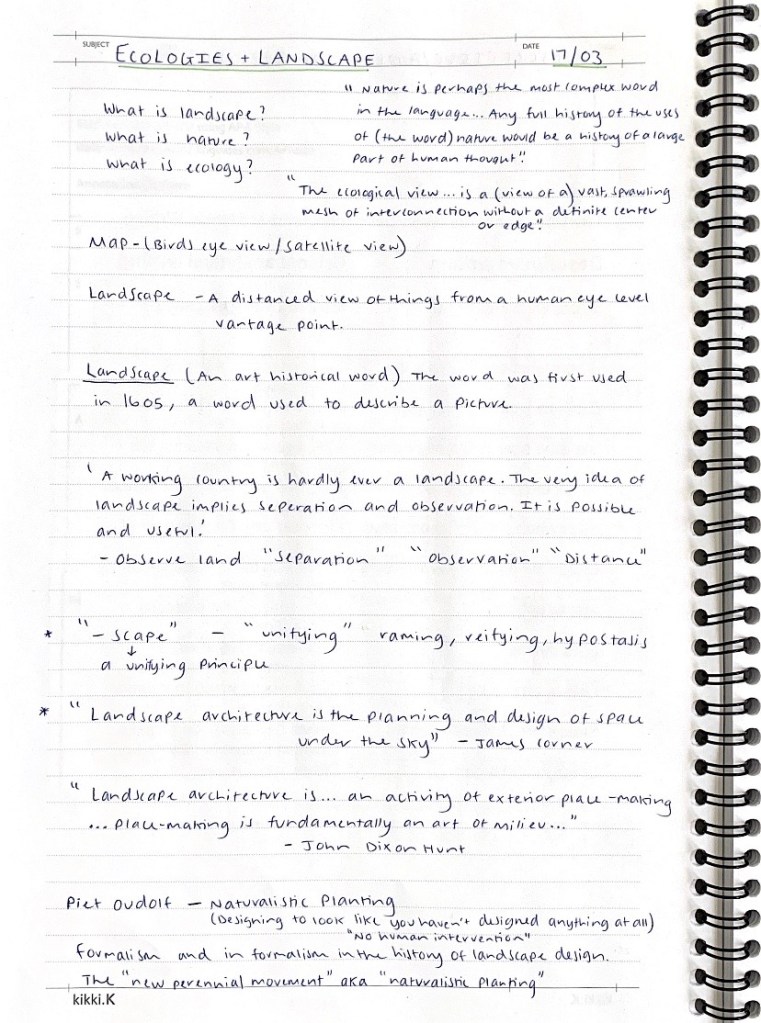 SUBJECT ECOLOGIES + LANDSCAPE DATE 17/03
What is landscape?
What is nature?
What is ecology?
" Nature is perhaps the most complex word
in the language... Any full history of the uses
of (the word) nature would be a history of a large
part of human thought".
"The ecological view... is a (view of a) vast, sprawling
mesh of interconnection without a definite center
or edge".
Map - (Birds eye view / satellite view)
Landscape - A distanced view of things from a human eye level
vantage point.
Landscape (An art historical word) The word was first used
in 1605, a word used to describe a picture.
' A working country is hardly ever a landscape. The very idea of
landscape implies seperation and observation. It is possible
and useful.'
- Observe land "Separation" "Observation" "Distance"
* "- scape" - "unifying" raming, reifying, hypostasis
↓
a unifying principle
* "Landscape architecture is the planning and design of space
under the sky" - James Corner
"Landscape architecture is... an activity of exterior place-making
... place-making is fundamentally an art of milieu..."
- John Dixon Hunt
Piet Oudolf - Naturalistic Planting
(Designing to look like you haven't designed anything at all)
"No human intervention"
Formalism and in formalism in the history of landscape design.
The "new perennial movement" aka "naturalistic planting"
kikki.K